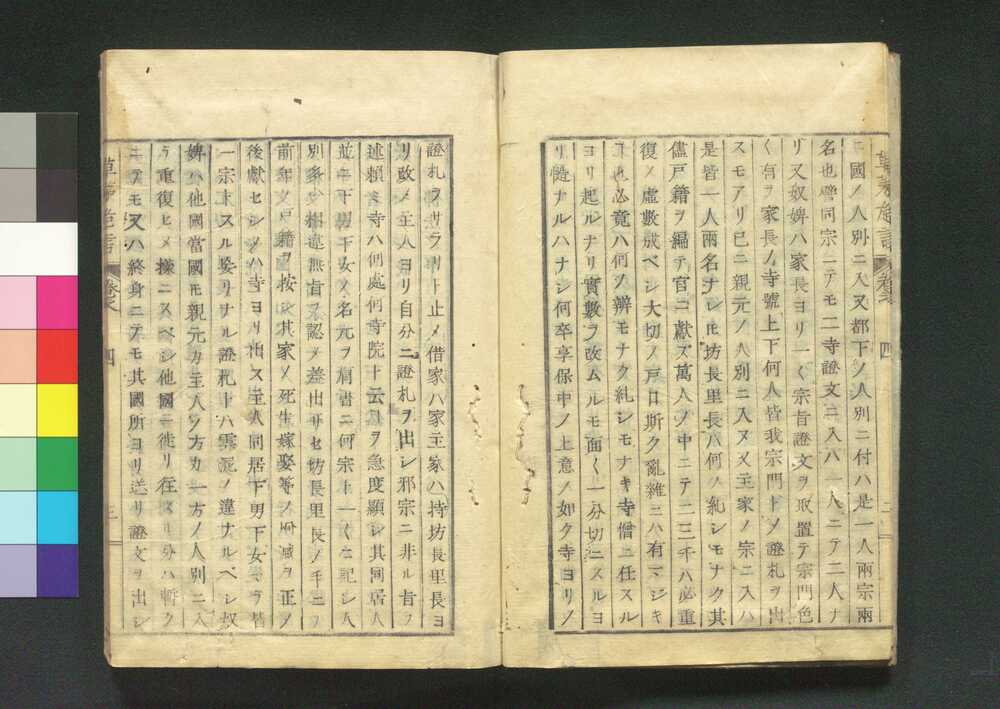 ニ國ノ人別ニ入又都下ノ人別ニ付ハ是一人兩宗兩
名也譬同宗ニテモ二寺證文ニ入ハ一人ニテ二人ナ
リ又奴婢ハ家長ヨリ一〱宗旨證文ヲ取置テ宗門色
〱有ヲ家長ノ寺號上下何人皆我宗門トメ證札ヲ出
スモアリ已ニ親元ノ人別ニ入又主家ノ宗ニ入ハ
是皆一人兩名ナシ𪜈坊長里長八何ノ糺シモナク其
儘戸籍ヲ編テ官ニ獻ズ萬人ノ中ニテ二三千ハ必重
復ノ虚數成ベシ大切ノ戸口斯ク亂雜ニハ有マジキ
也必竟ハ何ヲ辨モナク糺シモナキ寺僧ニ任スル
ヨリ起ルナリ實數ヲ改ムルモ面〱一分切ニスルヨ
リ慥ナルハナシ何卒享保中ノ上意ノ如ク寺ヨリノ
草茅危言
四
證札ヲサラリト止メ借家ハ家主家ハ持坊長里長ヨ
リ改メ主人ヨリ自分ニ證札ヲ出シ邪宗ニ非ル旨ヲ
述賴ム寺ハ何處何寺院ト云ヿヲ急度顯シ其同居人
並ニ下男下女ノ名元ヲ肩書ニ何宗ト一〱ニ記シ人
別多少相違無旨ヲ認メ差出サセ坊長里長ノ手ニテ
前年ノ戸籍ヲ按シ其家ノ死生嫁娶等ノ増减ヲ正メ
後獻セシメハ寺ヨリ出ス主人同居下男下女等ヲ皆
一宗トスル妄リナル證札トハ雲泥ノ違ナルベシ奴
婢ハ他國當國モ親元カ主人ノ方カ一方ノ人別ニ入
テ重復セヌ樣ニスベシ他國ニ徙リ在スル分ハ暫ク
ニテモ又ハ終身ニテモ其國所ヨリ送リ證文ヲ出シ
草茅危言
四